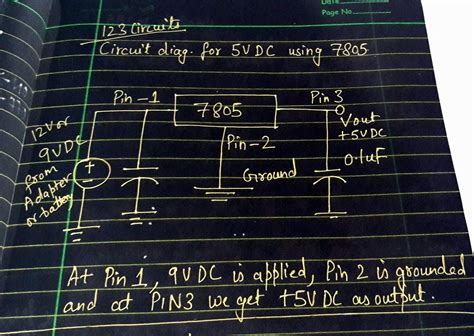 Date
Page No
123 Circuits
Circuit diag. for 5VDC using 7805
Pin-1
7805
Pin 3
Vout
+5VDC
Pin-2
Ground
0.1uF
12V or
9VDC
from
Adapter
or battery
+
At Pin 1, 9VDC is applied, Pin 2 is grounded
and at PIN3 we get +5V DC as output.